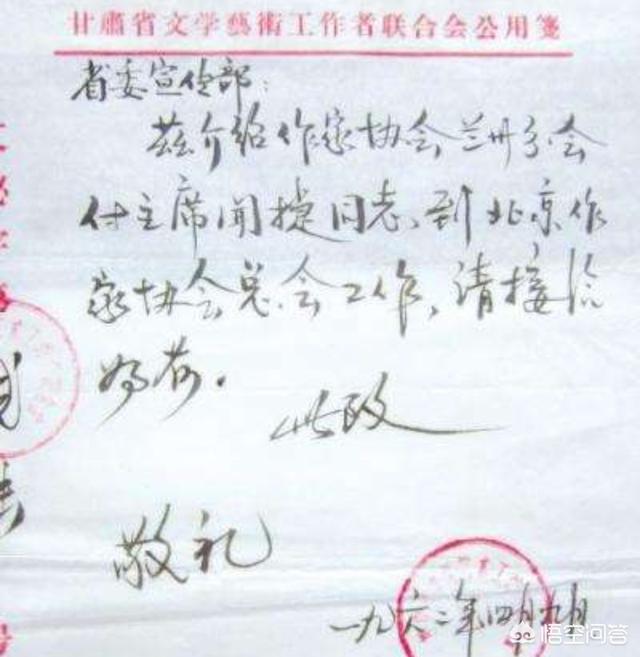 甘肃省文学藝術工作者联合会公用箋
省委宣传部：
兹介绍作家协会兰州分会
付主席闻捷同志、到北京作
家协会总会工作，请接洽
为荷。
此致
敬礼
一九六二年四月九月
悟空问答